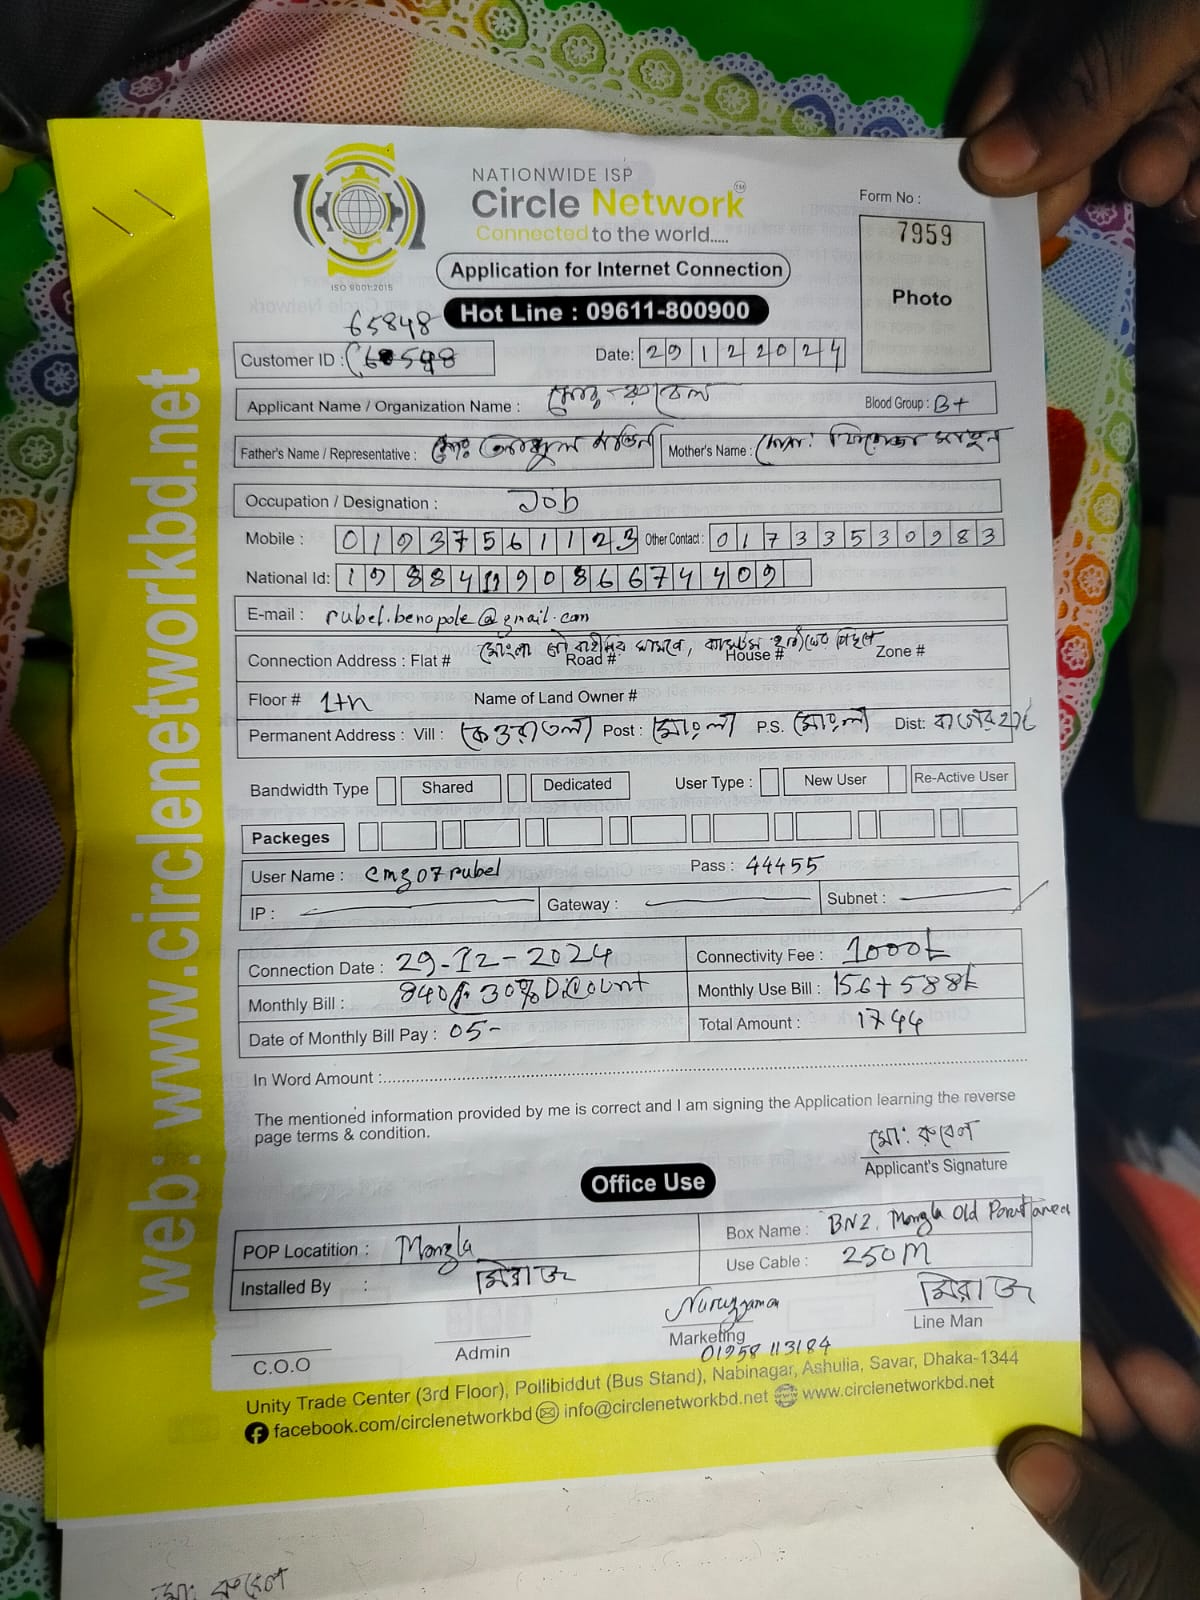 NATIONWIDE ISP
Circle Network™
Connected to the world.....
ISO 9001:2015
Application for Internet Connection
Hot Line : 09611-800900
Form No :
7959
Photo
65848
Customer ID :
Date: 29122024
Applicant Name / Organization Name : মোঃ রুবেল
Blood Group : B+
Father's Name / Representative : মোঃ
Mother's Name : মোসাঃ
Occupation / Designation : Job
Mobile : 01937561123 Other Contact : 01733530983
National Id: 19884119086674409
E-mail : rubel.benapole@gmail.com
Connection Address : Flat # Road # House # Zone #
মোংলা
Floor # 1th Name of Land Owner #
Permanent Address : Vill : কেওরাতলা Post : মোংলা P.S. মোংলা Dist: বাগেরহাট
Bandwidth Type Shared Dedicated User Type : New User Re-Active User
Packeges
User Name : cmg07rubel Pass : 44455
IP : Gateway : Subnet :
Connection Date : 29-12-2024 Connectivity Fee : 1000৳
Monthly Bill : 840/- 30% Discount Monthly Use Bill : 156+588৳
Date of Monthly Bill Pay : 05- Total Amount : 1744
In Word Amount :
The mentioned information provided by me is correct and I am signing the Application learning the reverse
page terms & condition.
মো: রুবেল
Applicant's Signature
Office Use
POP Locatition : Mongla Box Name : BN2, Mongla Old Port area
Installed By : মিরাজ Use Cable : 250M
C.O.O
Admin
Nuruzzaman
Marketing
01958 113184
মিরাজ
Line Man
Unity Trade Center (3rd Floor), Pollibiddut (Bus Stand), Nabinagar, Ashulia, Savar, Dhaka-1344
facebook.com/circlenetworkbd info@circlenetworkbd.net www.circlenetworkbd.net
web: www.circlenetworkbd.net
মো: রুবেল